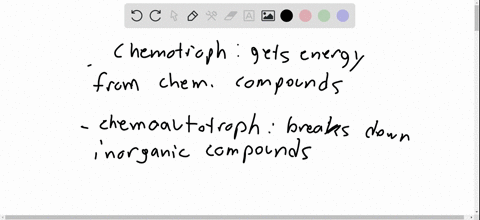 chemotroph: gets energy
from chem. compounds
- chemoautotroph: breaks down
inorganic compounds